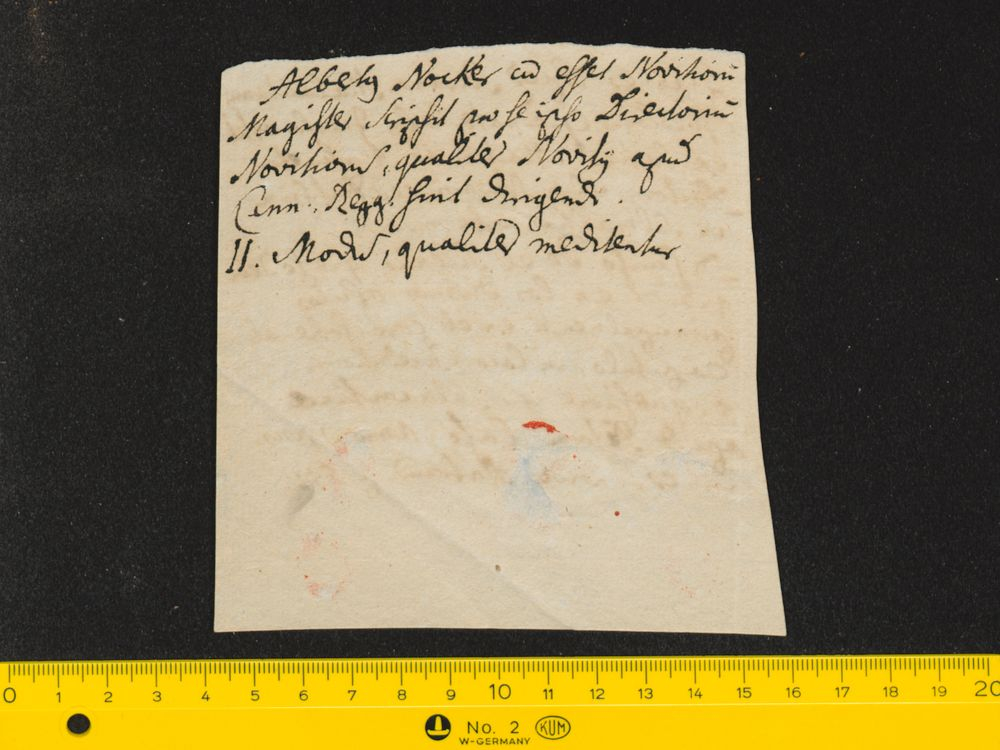 Alberty Nocker cū esset Novitiorū
Magister scripsit pro se ipso Directoriū
Novitiorū, qualiter Novitij apud
Cann. Regg. sint dirigendi.
II. Modus, qualiter meditentur
0 1 2 3 4 5 6 7 8 9 10 11 12 13 14 15 16 17 18 19 20
No. 2 KUM
W-GERMANY